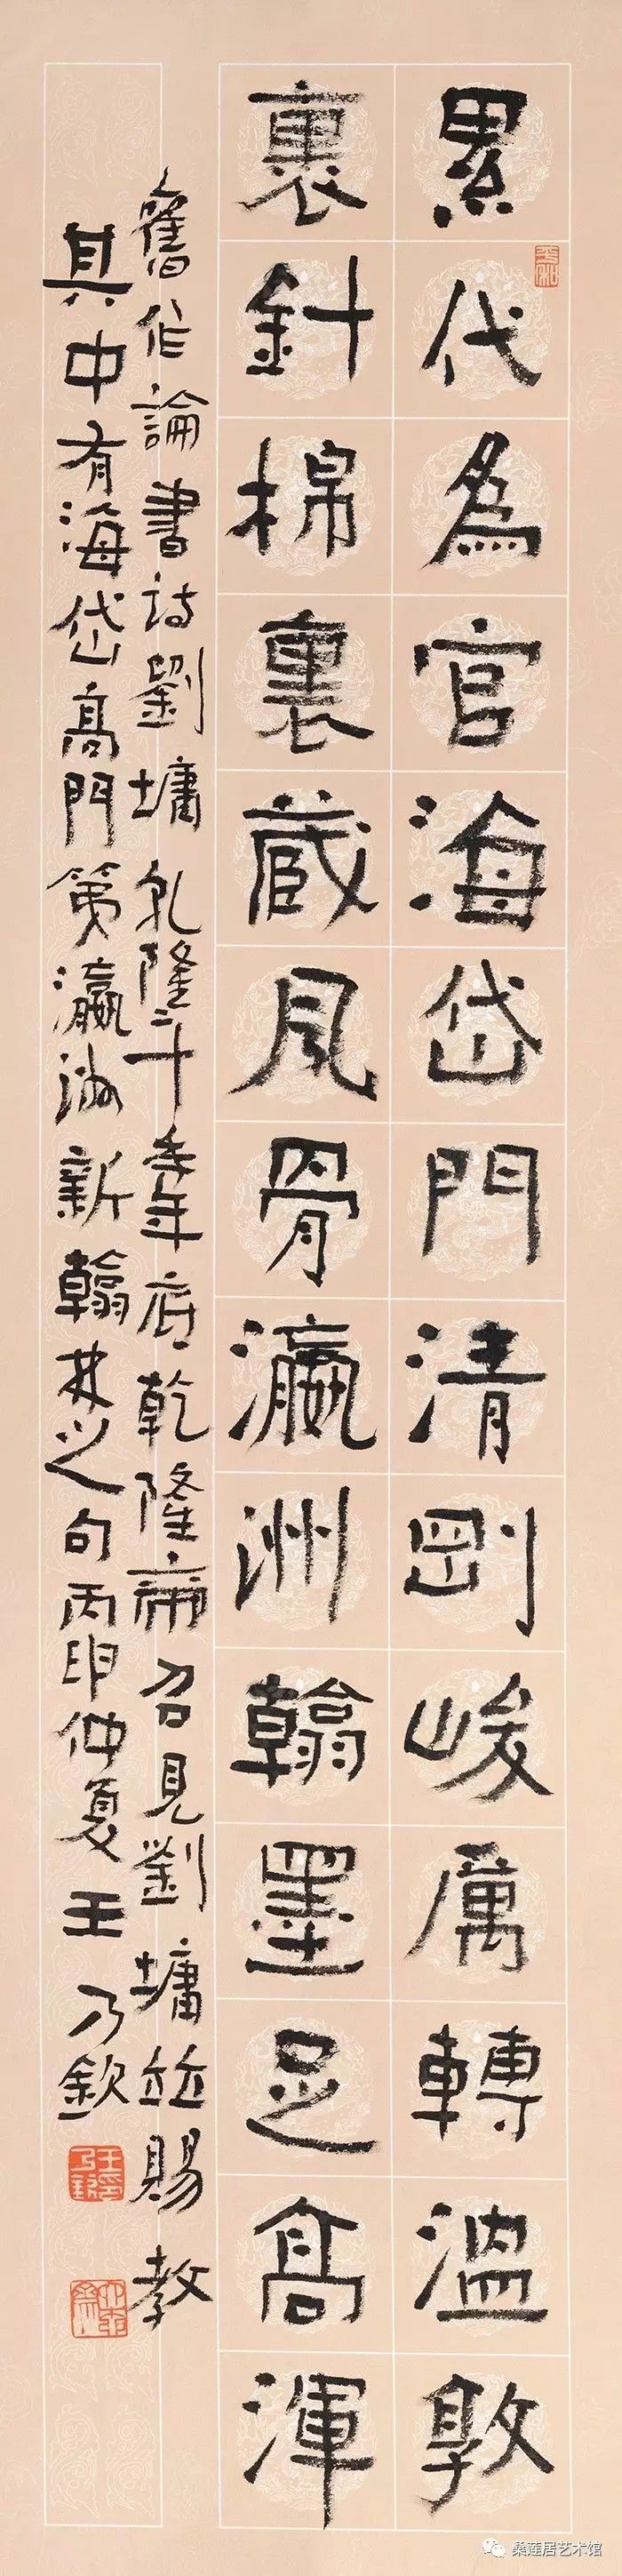 累代為官海岱門清剛峻厲轉溫敦
裹針棉裏藏風骨瀛洲翰墨足高渾
舊作論書詩劉墉乾隆二十年底乾隆帝召見劉墉並賜教
其中有海岱高門第瀛洲新翰林之句丙申仲夏王乃欽
桑莲居艺术馆